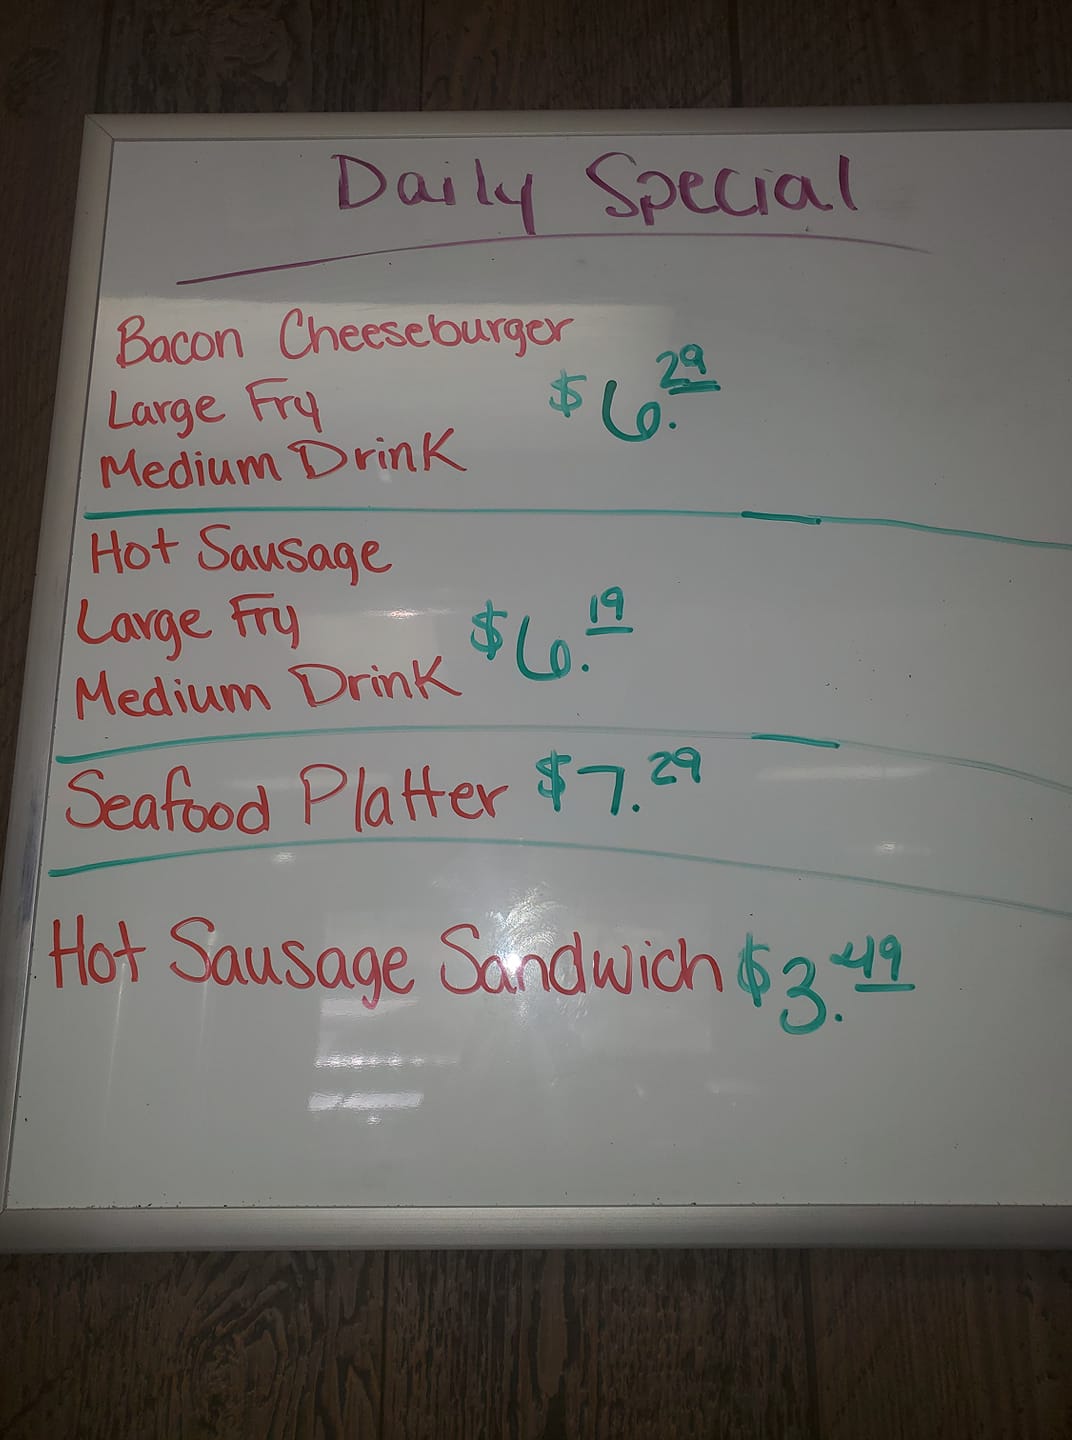 Daily Special
Bacon Cheeseburger
Large Fry $6.29
Medium Drink
Hot Sausage
Large Fry $6.19
Medium Drink
Seafood Platter $7.29
Hot Sausage Sandwich $3.49